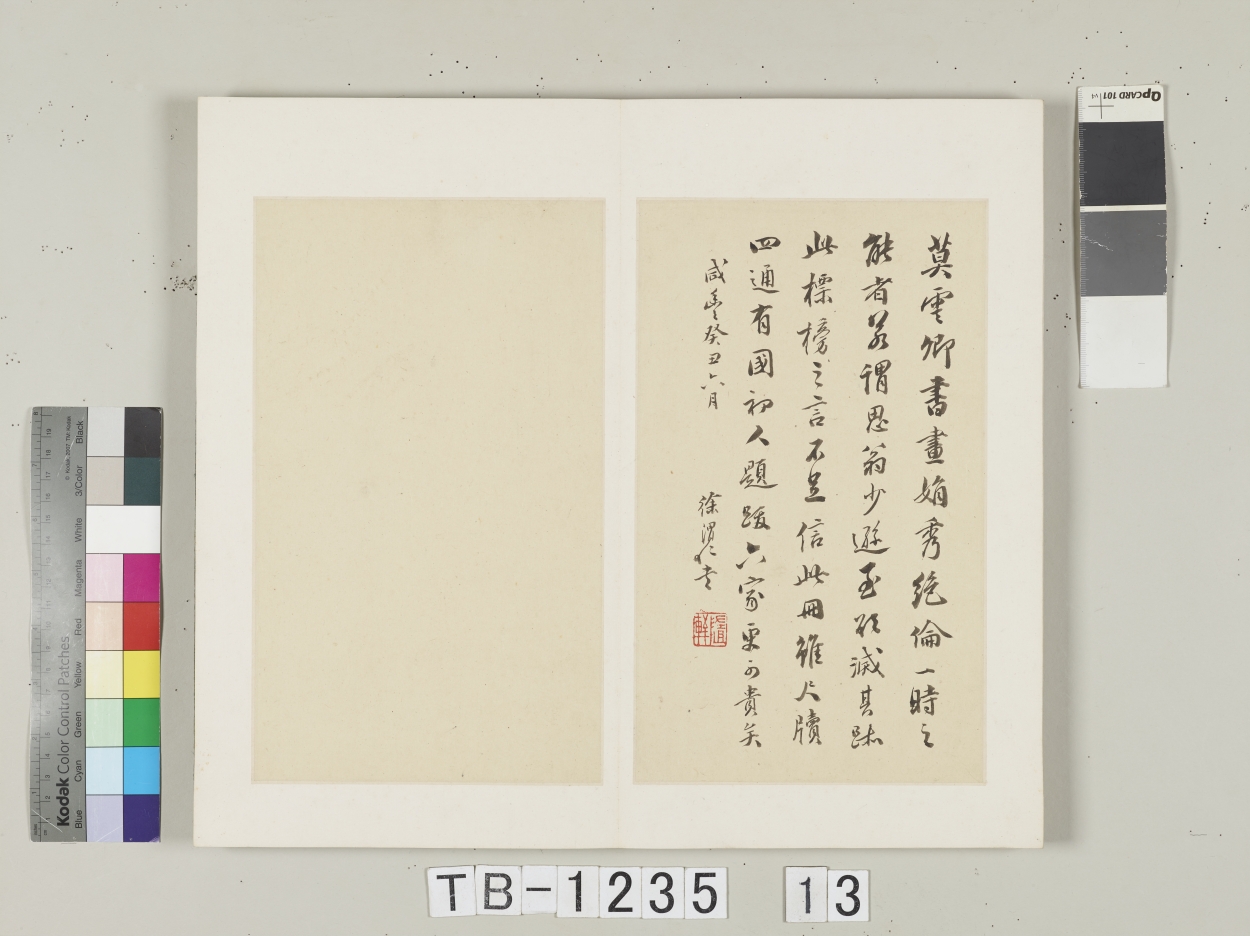 莫雲卿書畫娟秀絕倫一時之
能者若謂思翁少遜至欲滅其跡
此標榜之言不足信此冊雖尺牘
四通有國初人題跋六家更可貴矣
咸豐癸丑六月
徐渭仁書
隨軒
TB-1235 13
QPCARD 101 v4
Kodak Color Control Patches
Blue Cyan Green Yellow Red Magenta White 3/Color Black